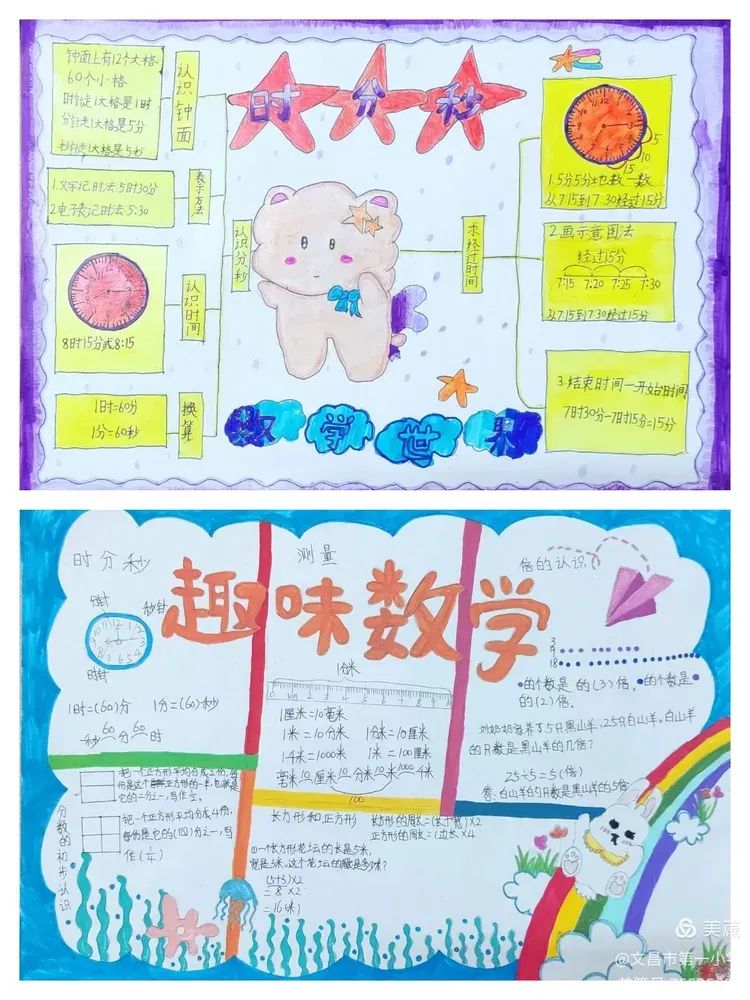 时分秒
认识钟面
钟面上有12个大格
60个小格
时针走1大格是1时
分针走1大格是5分
秒针走1大格是5秒
表示方法
1.文字记时法5时30分
2.电子表记时法5:30
认识分秒
认识时间
8时15分或8:15
换算
1时=60分
1分=60秒
求经过时间
5
10
15
1.5分5分地数一数
从7:15到7:30经过15分
2.画示意图法
经过15分
7:15 7:20 7:25 7:30
从7:15到7:30经过15分
3.结束时间一开始时间
7时30分-7时15=15分
数学世界
趣味数学
时分秒
分针
秒针
时针
1时=(60)分 1分=(60)秒
秒 60 分 60 时
测量
1分米
1厘米=10毫米
1米=10分米 1分米=10厘米
1千米=1000米 1米=100厘米
毫米 10 厘米 10 分米 10 米 1000 千米
100
倍的认识
3
9
18
的个数是 的(3)倍,的个数是
的(2)倍。
25÷5=5(倍)
答:白山羊的只数是黑山羊的5倍
分数的初步认识
把一个正方形平均分成2份,每
把一个正方形平均分成4份,
每份是它的(四)分之一,写
作(1/4)
长方形和正方形
长方形的周长=(长+宽)×2
正方形的周长=(边长×4
①一个长方形花坛的长是5米,
宽是3米,这个花坛的周长是多少米?
(5+3)×2
=8×2
=16(米)
美篇
@文昌市第一小学